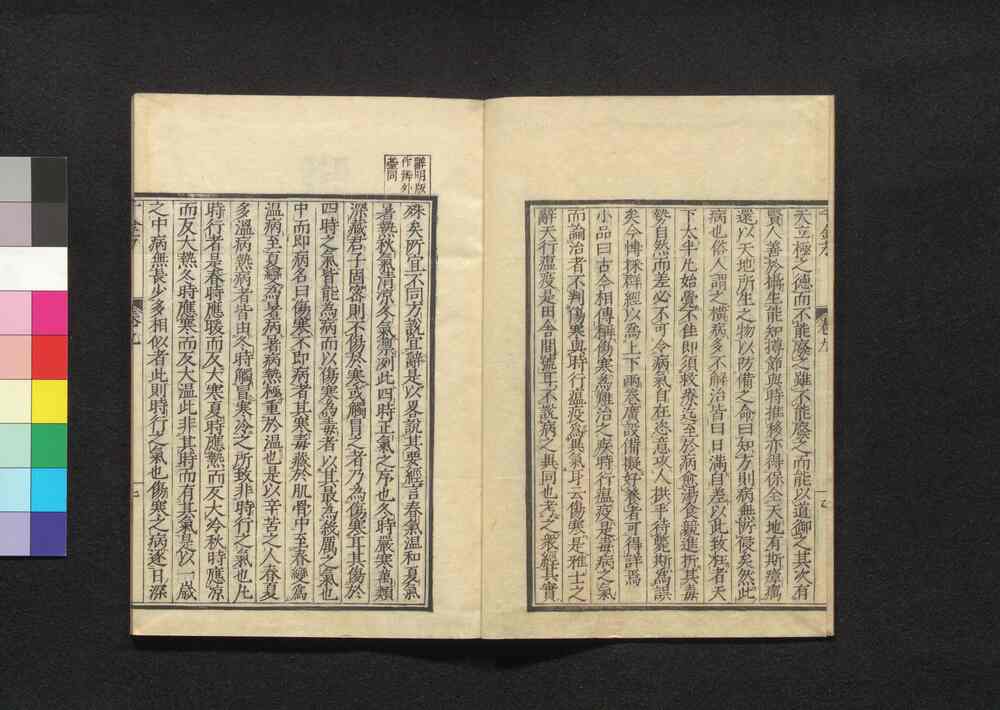 天立極之德而不能廢之雖不能廢之而能以道御之其次有
賢人善於攝生能知撙節與時推移亦得保全天地有斯瘴癘
還以天地所生之物以防備之命曰知方則病無所侵矣然此
病也俗人謂之橫病多不解治皆曰日滿自差以此致枉者天
下大半凡始覺不佳即須救療迄至於病愈湯食競進折其毒
勢自然而差必不可令病氣自在恣意攻人拱手待斃斯為誤
矣今博採群經以為上下兩卷廣設備擬好養者可得詳焉
小品曰古今相傳稱傷寒為難治之疾時行温疫是毒病之氣
而論治者不判傷寒與時行温疫為異氣耳云傷寒是雅士之
辭天行瘟疫是田舍間號耳不說病之異同也考之衆經其實
辭明版
作辨外
臺同
殊矣所宜不同方說宜辭是以畧說其要經言春氣温和夏氣
暑熱秋氣清凉冬氣凛冽此四時正氣之序也冬時嚴寒萬類
深藏君子固密則不傷於寒或觸冒之者乃為傷寒耳其傷於
四時之氣皆能為病而以傷寒為毒者以其最為殺厲之氣也
中而即病名曰傷寒不即病者其寒毒藏於肌骨中至春變為
温病至夏變為暑病暑病熱極重於温也是以辛苦之人春夏
多温病熱病者皆由冬時觸冒寒冷之所致非時行之氣也凡
時行者是春時應暖而反大寒夏時應熱而反大冷秋時應凉
而反大熱冬時應寒而反大温此非其時而有其氣是以一歲
之中病無長少多相似者此則時行之氣也傷寒之病逐日深